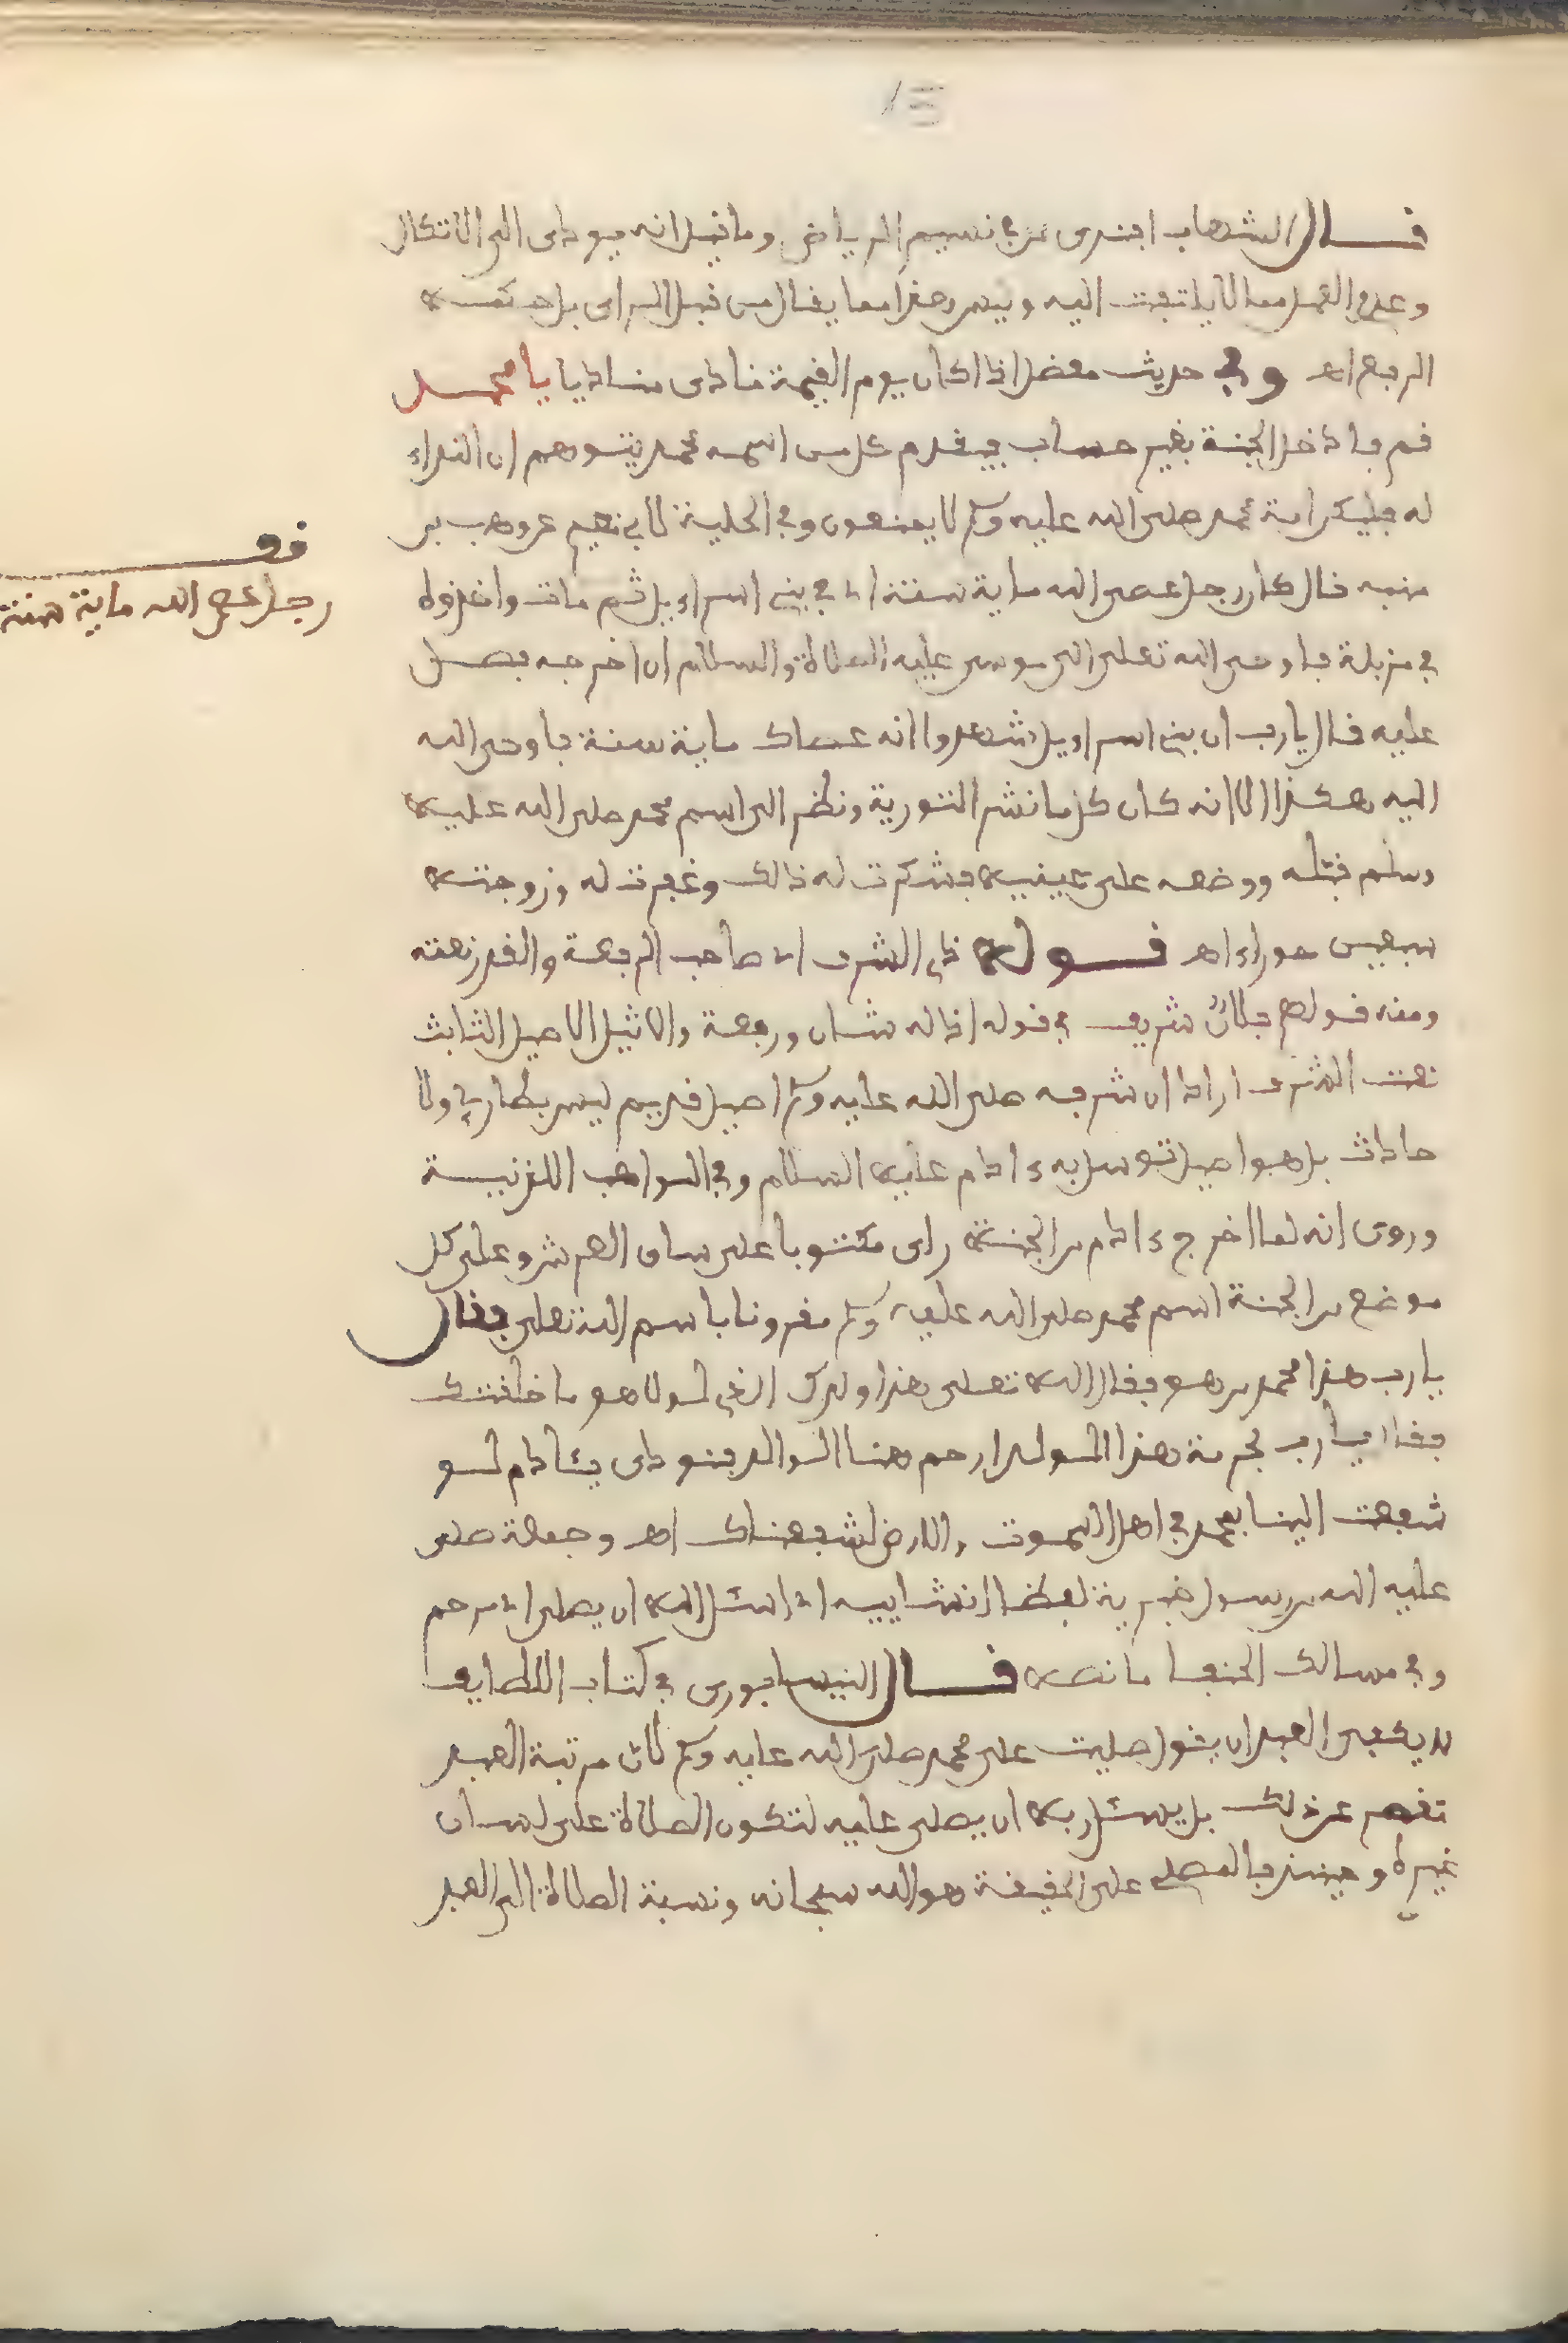 قال الشهاب افندى في نسيم الرياض وما قيل انه يودى الى الاتكال
وعدم العمل مما لا يلتفت اليه وليس هذا مما يقال من قبل الراى بل حكمه
الرفع اهـ وفي حديث معضل اذا كان يوم القيمة نادى مناديا يا محمد
قم فادخل الجنة بغير حساب فيقوم كل من اسمه محمد يتوهم ان النداء
له فلكرامة محمد صلى الله عليه وسلم لا يمنعون وفي الحلية لابي نعيم عن وهب بن
منبه قال كان رجل عصى الله ماية سنة اي في بني اسراءيل ثم مات واخذوه
في مزبلة فاوحى الله تعلى الى موسى عليه الصلاة والسلام ان اخرجه فصل
عليه قال يارب ان بني اسراءيل شهدوا انه عصاك ماية سنة فاوحى الله
اليه هكذا الا انه كان كل ما نشر التورية ونظر الى اسم محمد صلى الله عليه
وسلم قبله ووضعه على عينيه فشكرت له ذالك وغفرت له وزوجته
سبعين حوراء اهـ قوله ذي الشرف اي صاحب الرفعة والقدر نعته
ومنه قولهم فلان شريف في قوله اذا له شان ورفعة والاثيل الاصيل الثابت
نعت الشرف اراد ان شرفه صلى الله عليه وسلم اصيل قديم ليس بطارئ ولا
حادث بل هو اصيل توسل به ءادم عليه السلام وفي المواهب اللدنية
وروى انه لما اخرج ءادم من الجنة راى مكتوبا على ساق العرش وعلى كل
موضع من الجنة اسم محمد صلى الله عليه وسلم مقرونا باسم الله تعلى فقال
يارب هذا محمد من هو فقال الله تعلى هذا ولدك الذي لولا هو ما خلقتك
فقال يارب بحرمة هذا الولد ارحم هذا الوالد فنودى يئادم لو
شفعت الينا بمحمد في اهل السموت والارض لشفعناك اهـ وجملة صلى
عليه الله من رسول خبرية لفظا انشاييه اي اسئل الله ان يصلى اي يرحم
وفي مسالك الحنفا ما نصه قال النيسابورى في كتاب اللطايف
لا يكفى العبد ان يقول صليت على محمد صلى الله عليه وسلم لان مرتبة العبد
تقصر عن ذلك بل يسئل ربه ان يصلى عليه لتكون الصلاة على لسان
غيره وحينئذ فالمصلى على الحقيقة هو الله سبحانه ونسبة الصلاة الى العبد
قف
رجل عصى الله ماية سنة